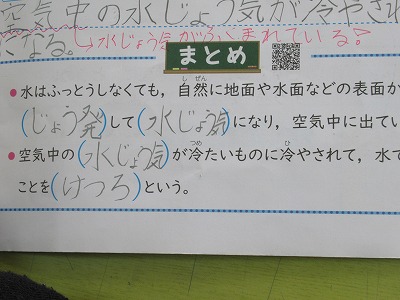 空気中の水じょう気が冷やされ
になる。→水じょう気がふくまれている?
まとめ
水はふっとうしなくても，自然に地面や水面などの表面か
(じょう発)して(水じょう気)になり，空気中に出てい
空気中の(水じょう気)が冷たいものに冷やされて，水で
ことを(けつろ)という。